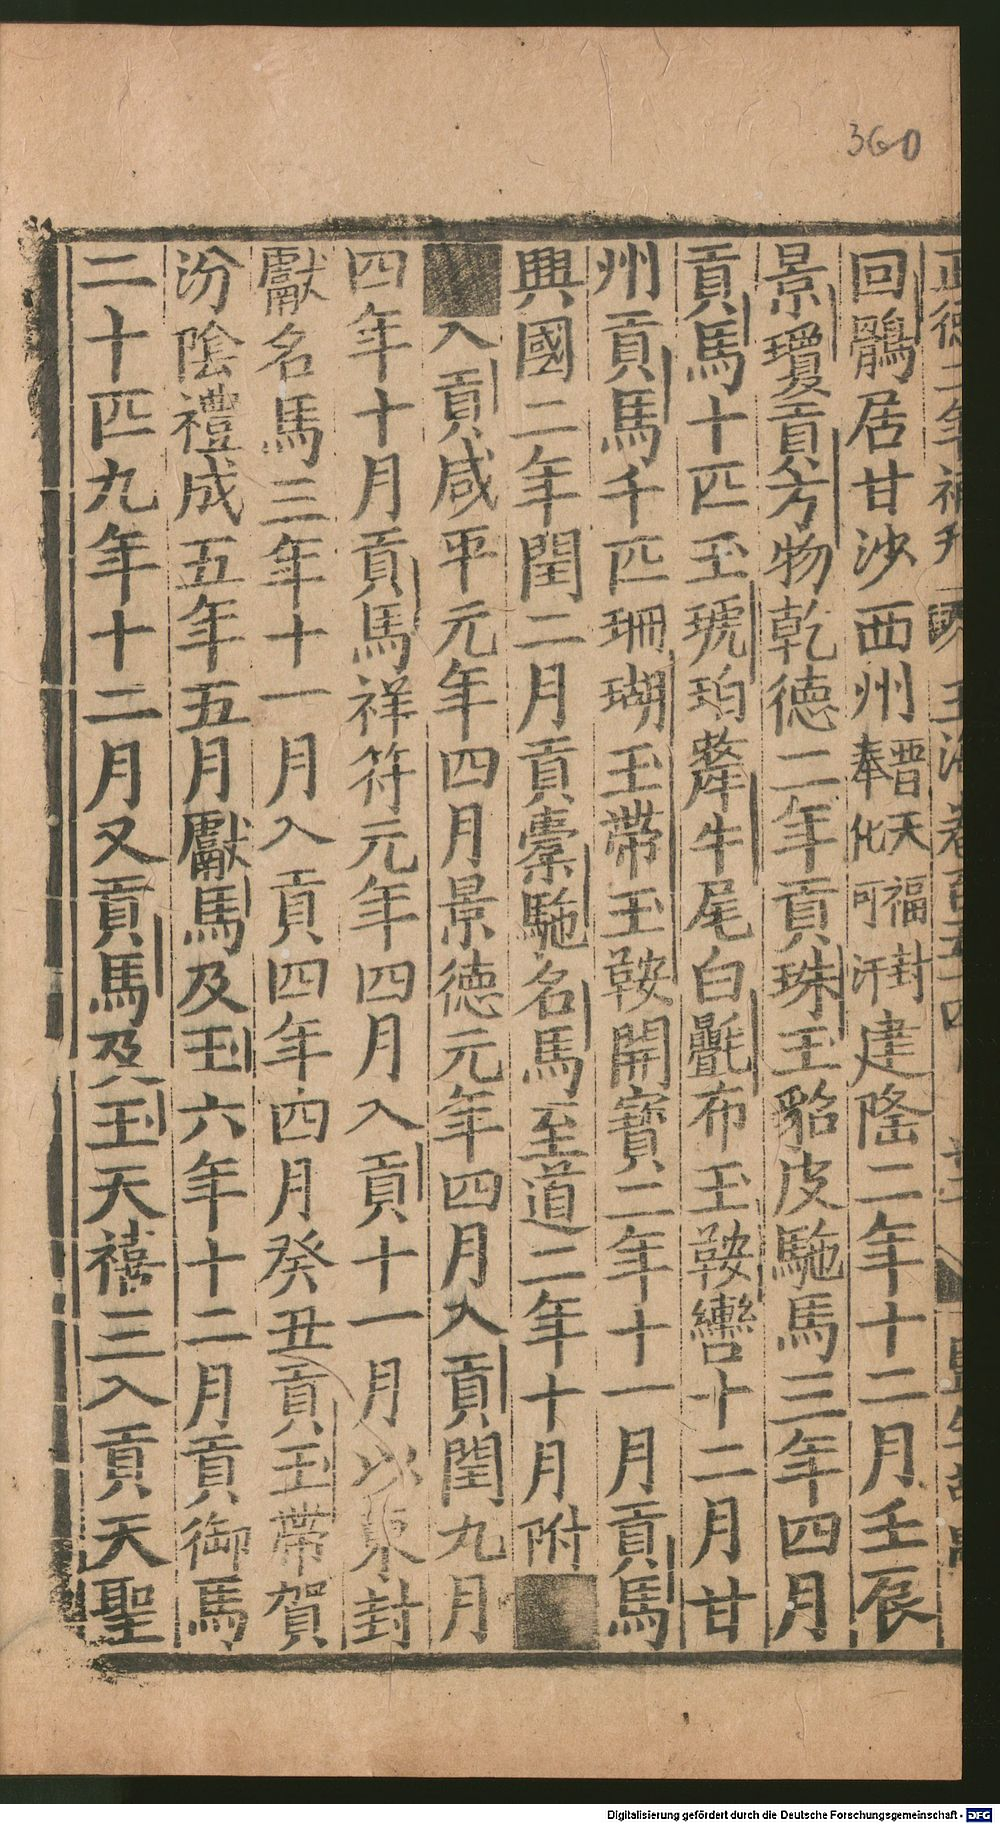 360
正德二年補刊 玉海卷百五十四
回鶻居甘沙西州晋天福封奉化可汗建隆二年十二月壬辰
景瓊貢方物乾德二年貢珠玉貂皮駞馬三年四月
貢馬十匹玉琥珀犛牛尾白㲲布玉鞍轡十二月甘
州貢馬千匹珊瑚玉帶玉鞍開寶二年十一月貢馬
興國二年閏二月貢橐駞名馬至道二年十月附
入貢咸平元年四月景德元年四月入貢閏九月
四年十月貢馬祥符元年四月入貢十一月以東封
獻名馬三年十一月入貢四年四月癸丑貢玉帶賀
汾陰禮成五年五月獻馬及玉六年十二月貢御馬
二十匹九年十二月又貢馬及玉天禧三入貢天聖
Digitalisierung gefördert durch die Deutsche Forschungsgemeinschaft - DFG